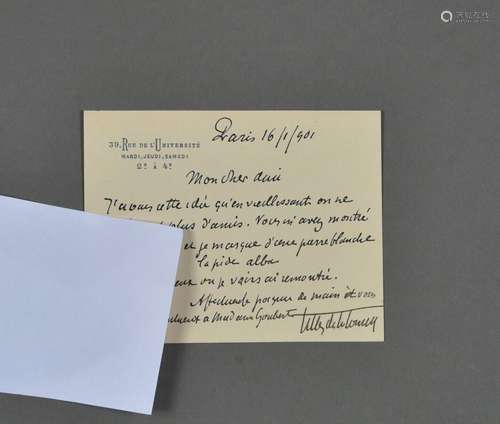 Paris 16/1/901
39, RUE DE L'UNIVERSITÉ
MARDI, JEUDI, SAMEDI
2h à 4h
Mon cher ami
J'avais cette idée qu'en vieillissant on ne
plus d'amis. Vous m'avez montré
et je marque d'une pierre blanche
lapide alba
où je vous ai rencontré.
Affectueuse poignée de main et vous
à Madame Goubert